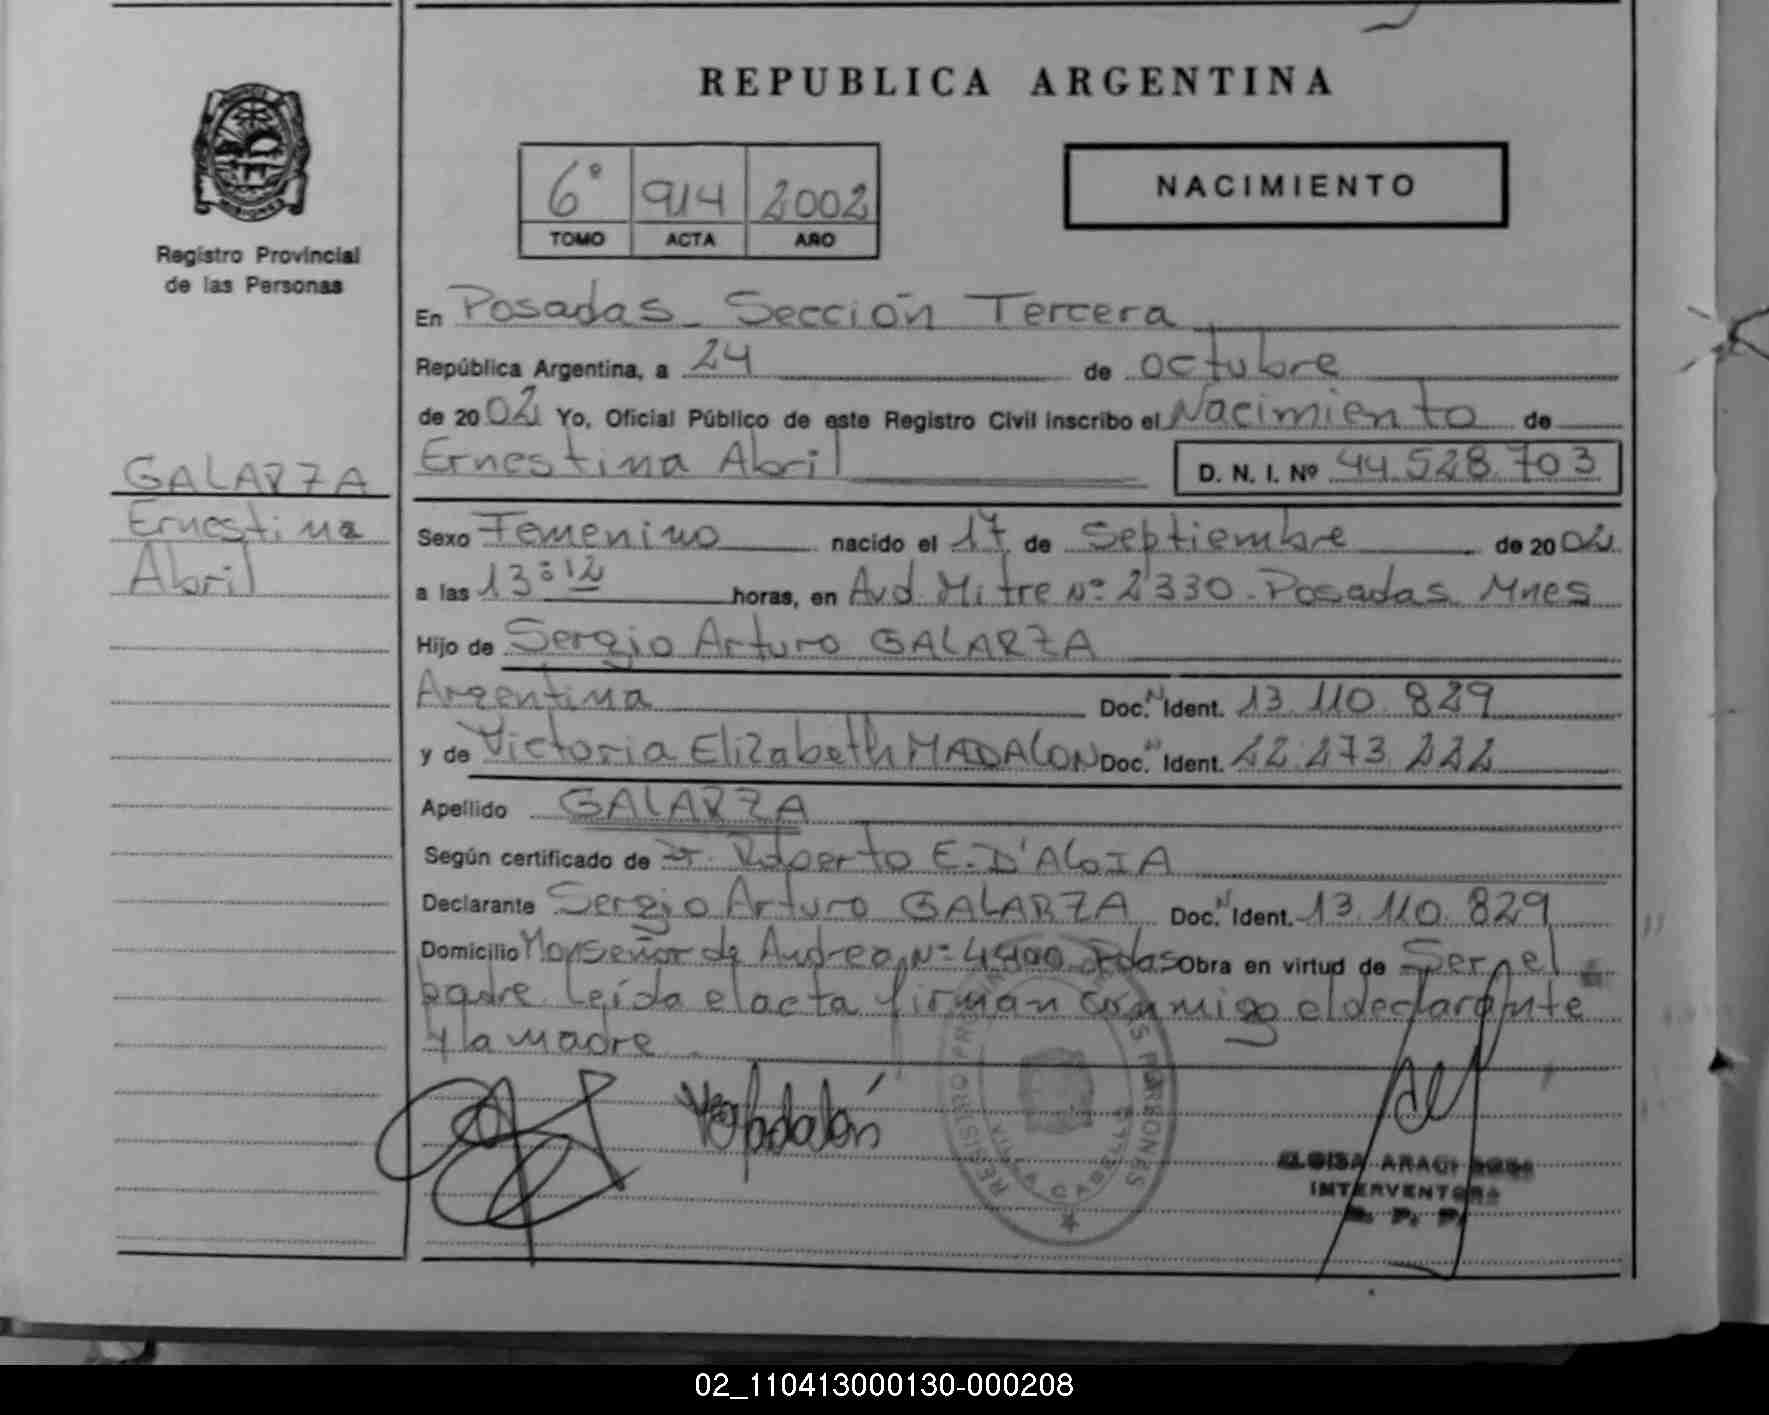 REPUBLICA ARGENTINA
MISIONES
Registro Provincial
de las Personas
6° 914 2002
TOMO ACTA AÑO
NACIMIENTO
En Posadas - Sección Tercera
República Argentina, a 24 de octubre
de 2002 Yo, Oficial Público de este Registro Civil inscribo el Nacimiento de
Ernestina Abril D. N. I. Nº 44.528.703
GALARZA
Ernestina
Abril
Sexo Femenino nacido el 17 de Septiembre de 2002
a las 13:12 horas, en Avd. Mitre Nº 2330 - Posadas Mnes
Hijo de Sergio Arturo GALARZA
Argentina Doc. N Ident. 13.110.829
y de Victoria Elizabeth MADALON Doc. N Ident. 22.273.222
Apellido GALARZA
Según certificado de Dr. Roberto E. D'ALOIA
Declarante Sergio Arturo GALARZA Doc. N Ident. 13.110.829
Domicilio Monseñor de Andrea Nº Pdas Obra en virtud de Ser el
padre. Leída el acta firman conmigo el declarante
y la madre
REGISTRO PERSONAS
VILLA CABELLO
INTERVENTORA
R. P. P.
02_110413000130-000208